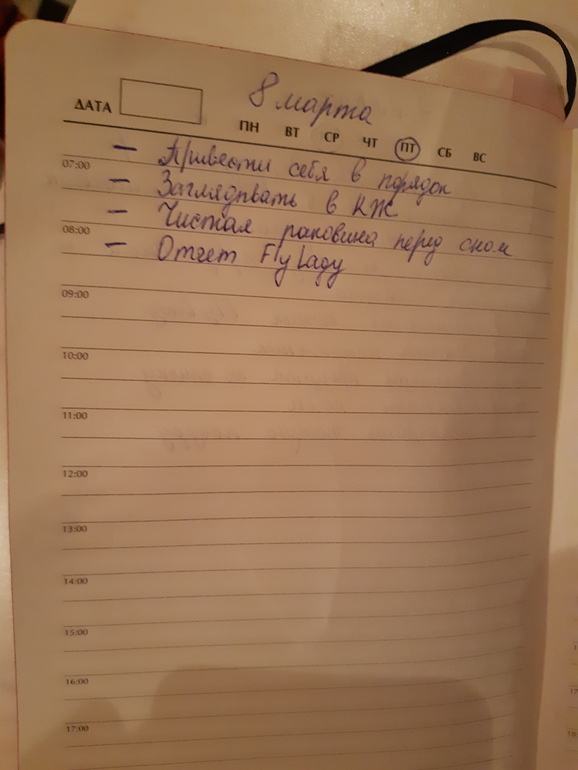 8 марта
ДАТА
ПН ВТ СР ЧТ ПТ СБ ВС
07:00
— Привести себя в порядок
— Заглядывать в КЖ
08:00
— Чистая раковина перед сном
— Отчет FlyLady
09:00
10:00
11:00
12:00
13:00
14:00
15:00
16:00
17:00